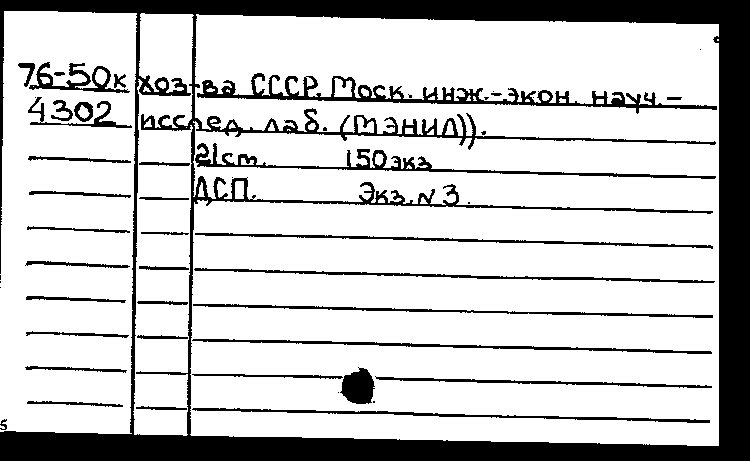 76-50к хоз-ва СССР. Моск. инж.-экон. науч.-
4302 исслед. лаб. (МЭНИЛ)).
21ст. 150экз
ДСП. Экз. N 3.
5